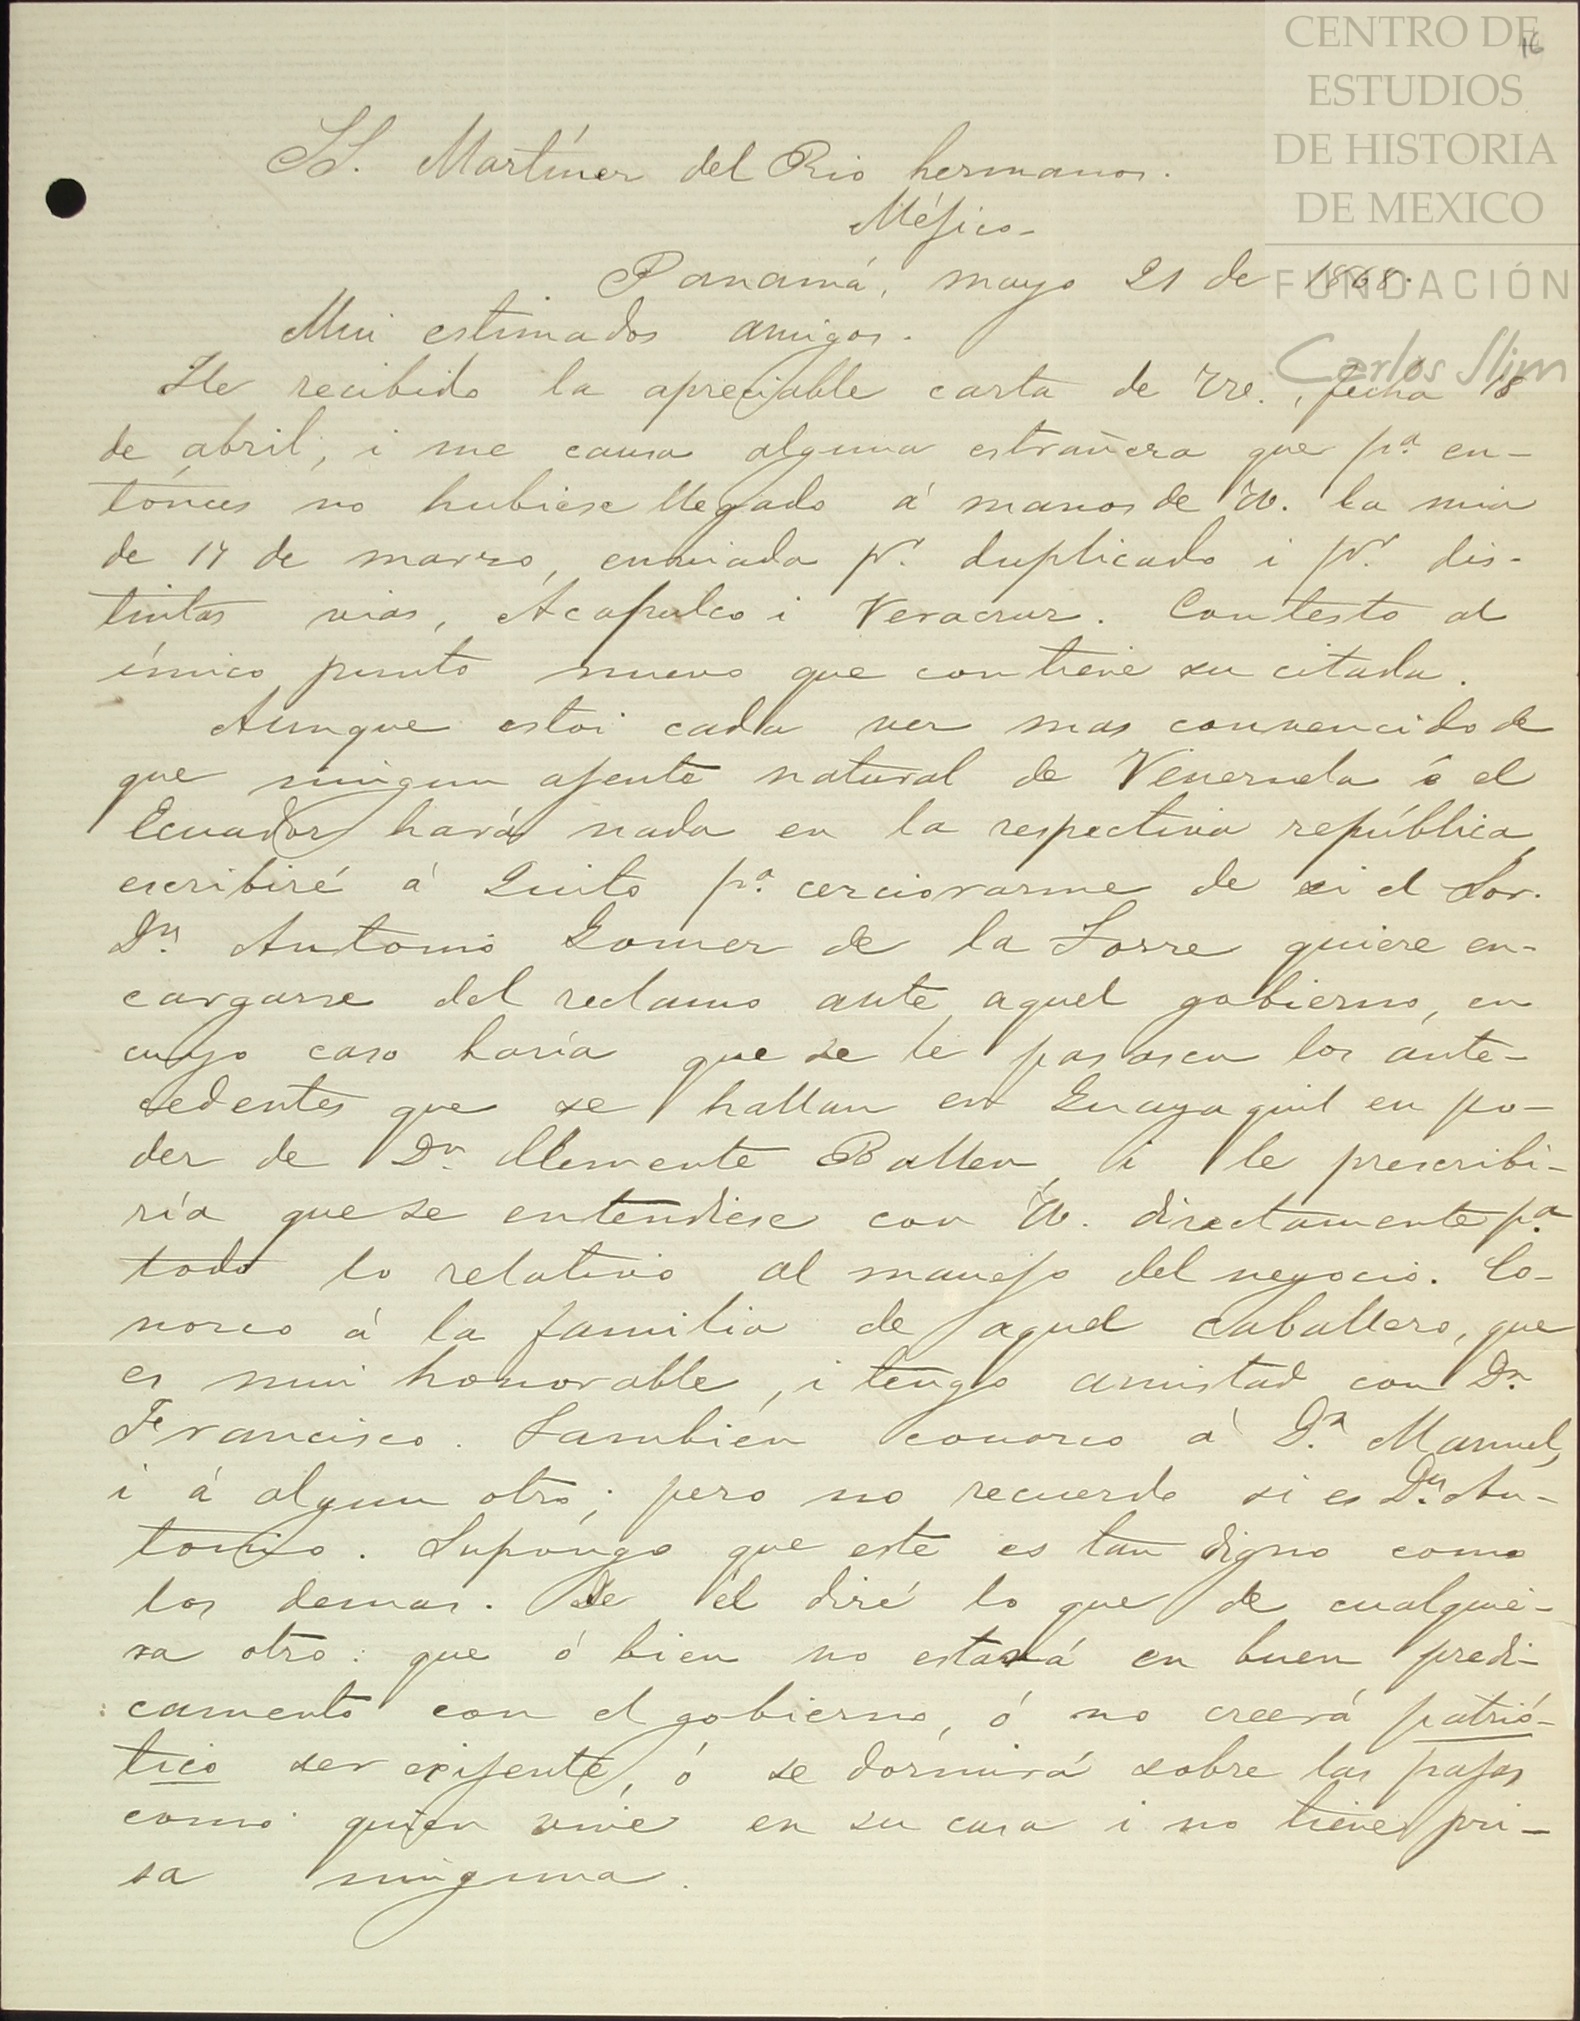 CENTRO DE
ESTUDIOS
DE HISTORIA
DE MEXICO
FUNDACIÓN
Carlos Slim
16
SS. Martínez del Rio hermanos.
Méjico-
Panamá, mayo 21 de 1868.
Mui estimados amigos.
He recibido la apreciable carta de Vre., fecha 18
de abril, i me causa alguna estrañeza que pa. en-
tónces no hubiese llegado á manos de VV. la mia
de 17 de marzo, enviada pr. duplicado i pr. dis-
tintas vias, Acapulco i Veracruz. Contesto al
único punto nuevo que contiene su citada.
Aunque estoi cada vez mas convencido de
que ningun ajente natural de Venezuela ó el
Ecuador hará nada en la respectiva república,
escribiré á Quito pa. cerciorarme de si el Sor.
Dn. Antonio Gomez de la Torre quiere en-
cargarse del reclamo ante aquel gobierno, en
cuyo caso haría que se le pasasen los ante-
cedentes que se hallan en Guayaquil en po-
der de Dn. Clemente Ballen, i le prescribi-
ría que se entendiese con VV. directamente pa.
todo lo relativo al manejo del negocio. Co-
nozco á la familia de aquel caballero, que
es mui honorable, i tengo amistad con Dn.
Francisco. Tambien conozco á Dn. Manuel,
i á algun otro; pero no recuerdo si es Dn. An-
tonio. Supongo que este es tan digno como
los demas. De él diré lo que de cualquie-
ra otro: que ó bien no estará en buen predi-
camento con el gobierno, ó no creerá patrió-
tico ser exijente, ó se dormirá sobre las pajas
como quien vive en su casa i no tiene pri-
sa ninguna.